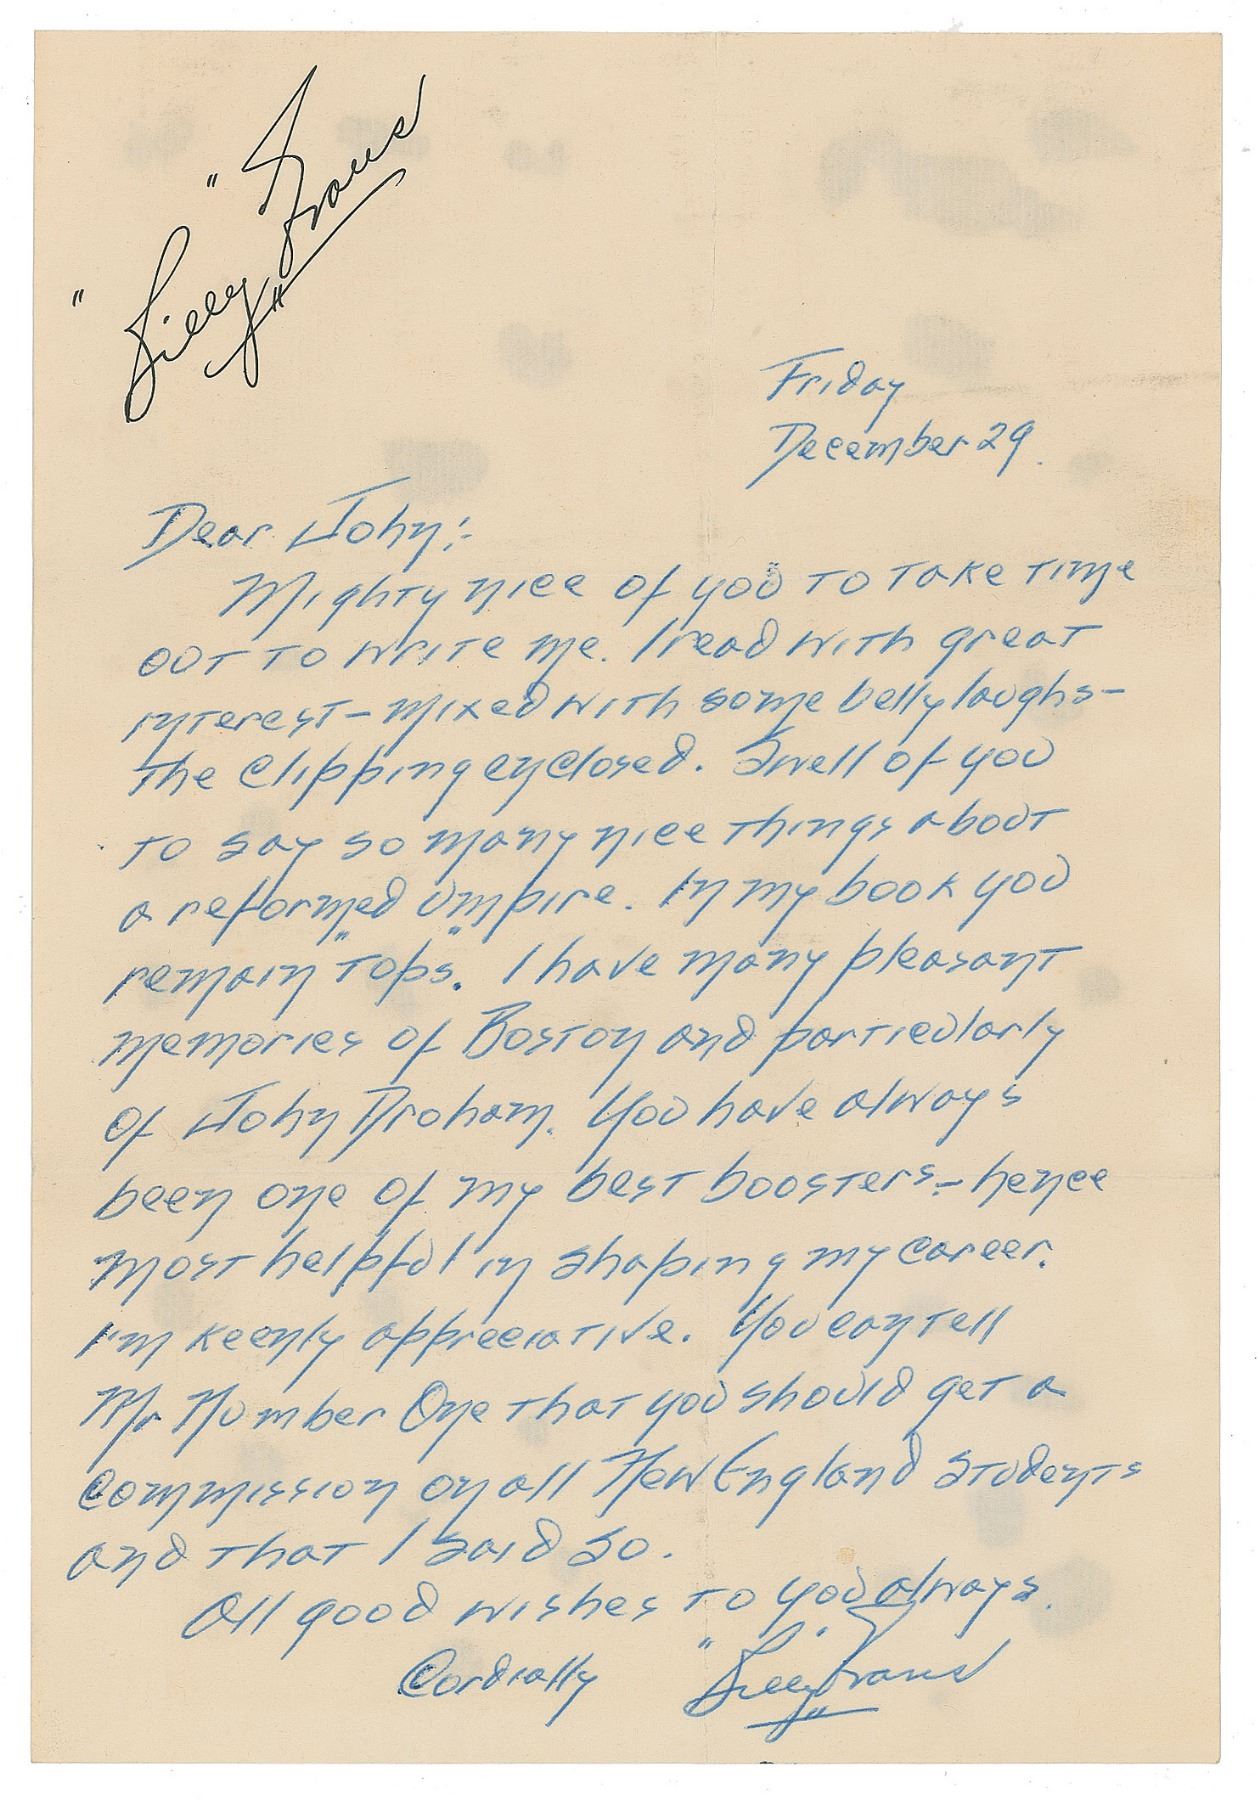 "Billy" Evans
Friday
December 29.
Dear John:-
Mighty nice of you to take time
out to write me. I read with great
interest - mixed with some belly laughs -
the clipping enclosed. Swell of you
to say so many nice things about
a reformed umpire. In my book you
remain "tops". I have many pleasant
memories of Boston and particularly
of John Droham. You have always
been one of my best boosters - hence
most helpful in shaping my career.
I'm keenly appreciative. You can tell
Mr Number One that you should get a
commission on all New England students
and that I said so.
All good wishes to you always.
Cordially "Billy" Evans